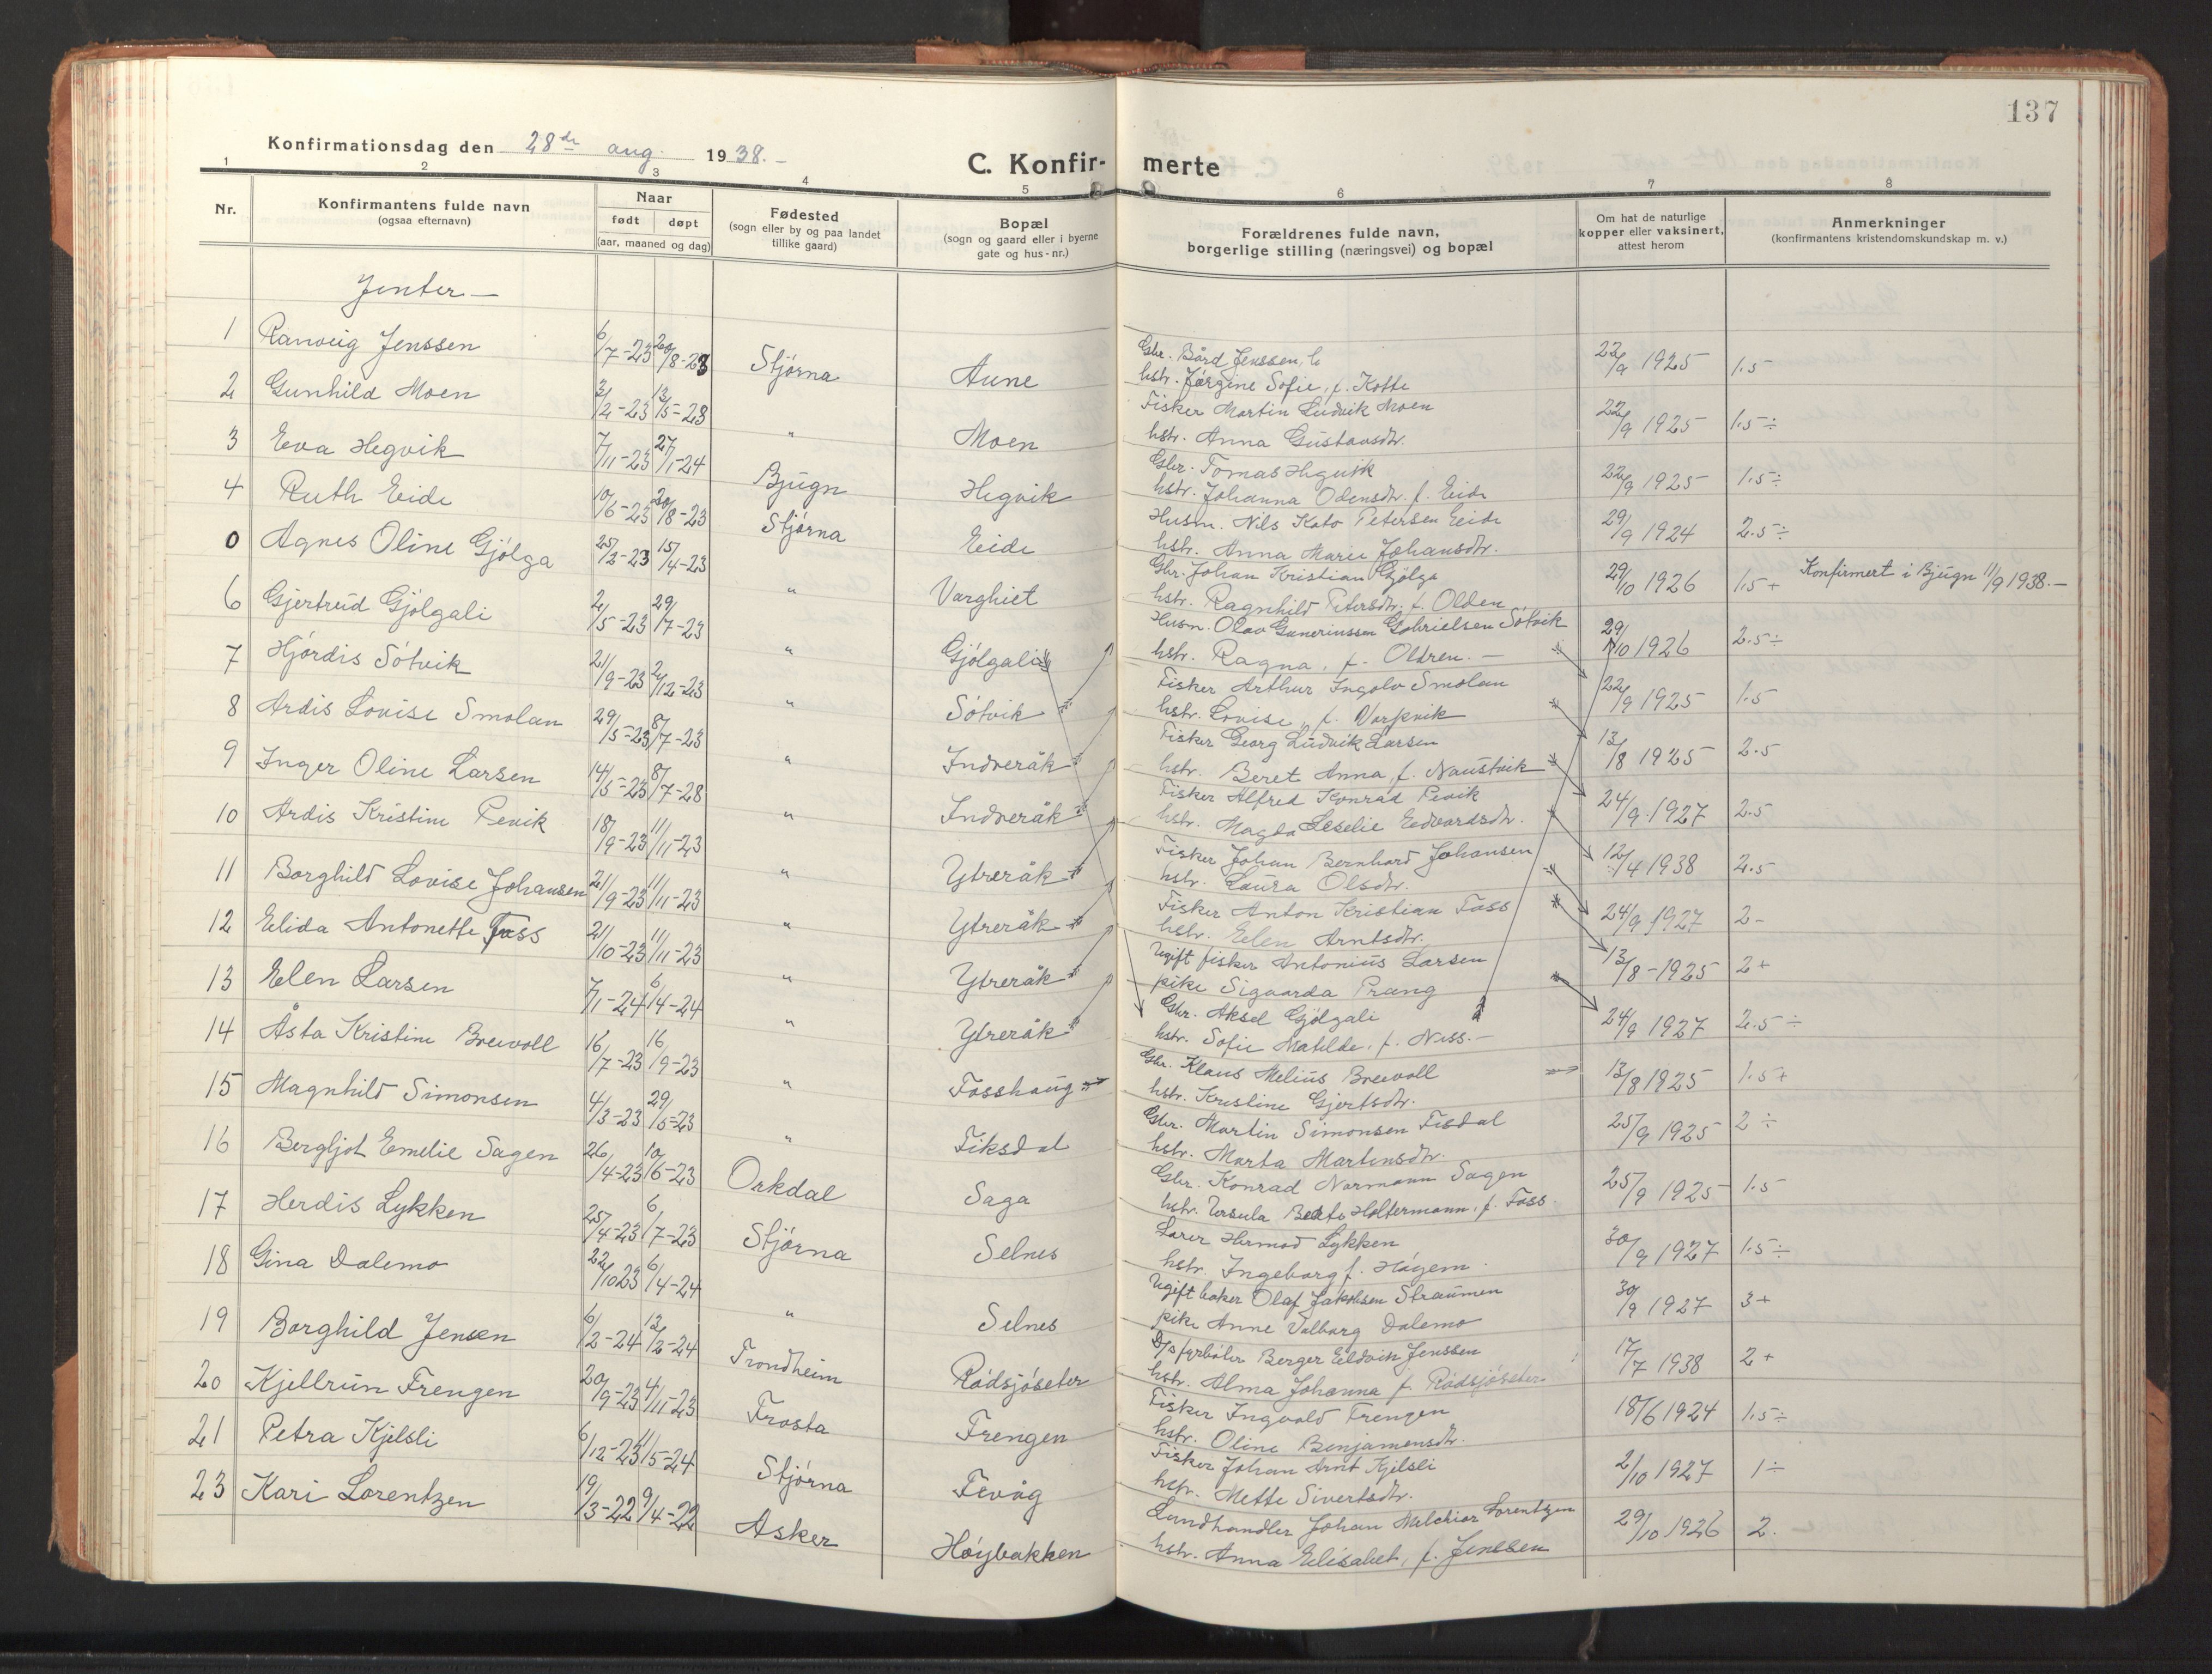 137
Konfirmationsdag den 28de aug. 1938. -
C. Konfir- merte
1 2 3 4 5 6 7 8
Nr. Konfirmantens fulde navn (ogsaa efternavn) Naar født døpt (aar, maaned og dag) Fødested (sogn eller by og paa landet tillike gaard) Bopæl (sogn og gaard eller i byerne gate og hus-nr.) Forældrenes fulde navn, borgerlige stilling (næringsvei) og bopæl Om hat de naturlige kopper eller vaksinert, attest herom Anmerkninger (konfirmantens kristendomskundskap m. v.)
Jenter —
1 Ranveig Jenssen 6/7-23 20/8-23 Stjørna Aune Gbr. Bård Jenssen, h hstr. Jørgine Sofie, f. Kotte 22/9 1925 1.5
2 Gunhild Moen 3/2-23 13/5-23 " Moen Fisker Martin Ludvik Moen hstr. Anna Gustavsdtr. 22/9 1925 1.5÷
3 Eva Hegvik 7/11-23 27/1-24 Bjugn Hegvik Gbr. Tomas Hegvik hstr. Johanna Odensdtr. f. Eide 22/9 1925 1.5÷
4 Ruth Eide 10/6-23 20/8-23 Stjørna Eide Husm. Nils Kato Petersen Eide hstr. Anna Marie Johansdtr. 29/9 1924 2.5÷
0 Agnes Oline Gjølga 25/2-23 15/4-23 " Varghiet Gbr. Johan Kristian Gjølga hstr. Ragnhild Petersdtr. f. Olden 29/10 1926 1.5+ Konfirmert i Bjugn 11/9 1938.—
6 Gjertrud Gjølgali 2/5-23 29/7-23 " Gjølgali Husm. Olav Gunerinssen Gabrielsen Søtvik hstr. Ragna, f. Oldren. — 29/10 1926 2.5÷
7 Hjørdis Søtvik 21/9-23 2/12-23 " Søtvik Fisker Arthur Ingolv Smolan hstr. Lovise, f. Varpvik 22/9 1925 1.5
8 Ardis Lovise Smolan 29/5-23 8/7-23 " Indreråk Fisker Georg Ludvik Larsen hstr. Beret Anna, f. Naustvik 13/8 1925 2.5
9 Inger Oline Larsen 14/5-23 8/7-23 " Indreråk Fisker Alfred Konrad Pevik hstr. Magda Leselie Edvardsdtr. 24/9 1927 2.5
10 Ardis Kristine Pevik 18/9-23 11/11-23 " Ytreråk Fisker Johan Bernhard Johansen hstr. Laura Olsdtr. 12/4 1938 2.5
11 Borghild Lovise Johansen 21/9-23 11/11-23 " Ytreråk Fisker Anton Kristian Foss hstr. Elen Arntsdtr. 24/9 1927 2-
12 Elida Antonette Foss 21/10-23 11/11-23 " Ytreråk Ugift fisker Antonius Larsen pike Sigvarda Prang 13/8-1925 2+
13 Elen Larsen 7/1-24 6/4-24 " Ytreråk Gbr. Aksel Gjølgali hstr. Sofie Matilde, f. Ness. — 24/9 1927 2.5÷
14 Åsta Kristine Brevoll 16/7-23 16/9-23 " Fosshaug Gbr. Klaus Melius Brevoll hstr. Kristine Gjertsdtr. 13/8 1925 1.5+
15 Magnhild Simonsen 4/3-23 29/5-23 " Fiksdal Gbr. Martin Simonsen Fisdal hstr. Marta Martinsdtr. 25/9 1925 2÷
16 Bergljot Emelie Sagen 26/4-23 10/6-23 Orkdal Saga Gbr. Konrad Normann Sagen hstr. Ursula Beate Holtermann, f. Foss 25/9 1925 1.5
17 Herdis Lykken 25/4-23 6/7-23 Stjørna Selnes Lærer Hermod Lykken hstr. Ingeborg f. Høyem 30/9 1927 1.5÷
18 Gina Dalemo 22/10 23 6/4-24 " Selnes Ugift baker Olaf Jakobsen Straumen pike Anne Valborg Dalemo 30/9 1927 3+
19 Borghild Jensen 6/2-24 13/2-24 Trondheim Rødsjøseter D/s fyrbøter Berger Eldvin Jenssen hstr. Alma Johanna f. Rødsjøseter 17/7 1938 2+
20 Kjellrun Frengen 20/9-23 4/11-23 Frosta Frengen Fisker Ingvald Frengen hstr. Oline Benjamensdtr. 18/6 1924 1.5÷
21 Petra Kjelsli 6/12-23 11/5-24 Stjørna Fevåg Fisker Johan Arnt Kjelsli hstr. Mette Sivertsdtr. 2/10 1927 1÷
23 Kari Lorentzen 19/3-22 9/4-22 Asker Høybakken Landhandler Johan Melchior Lorentzen hstr. Anna Elisabet, f. Jenssen 29/10 1926 2.